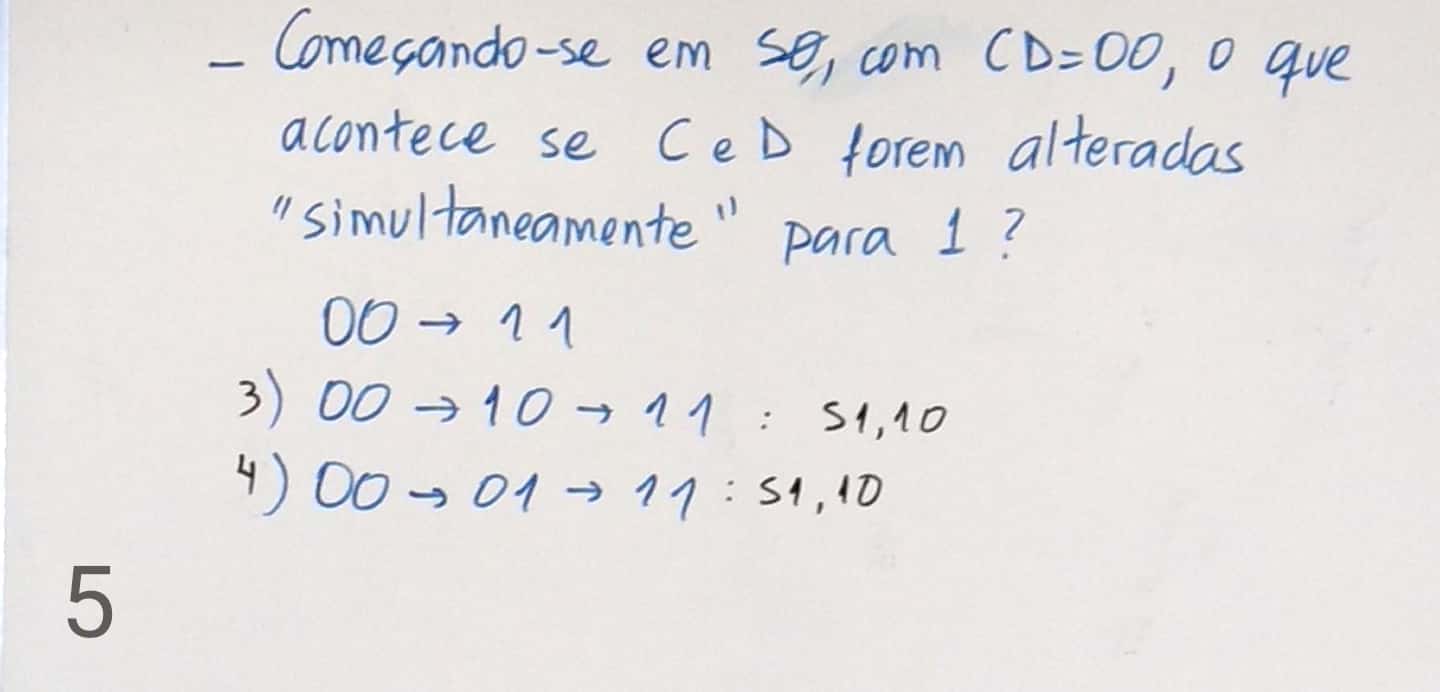 - Começando-se em S0, com CD=00, o que
acontece se C e D forem alteradas
"simultaneamente" para 1 ?
00 → 11
3) 00 → 10 → 11 : S1,10
4) 00 → 01 → 11 : S1,10
5